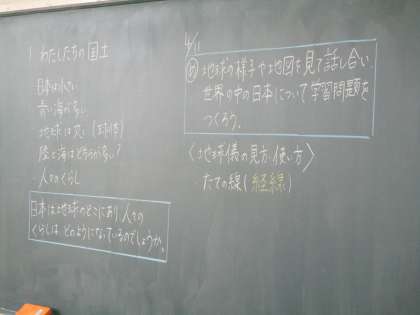 1 わたしたちの国土
日本は小さい
青い海が多し
地球は丸い(球体)
陸と海はどちらが多い?
・人々のくらし
日本は地球のどこにあり人々の
くらしは どのようになっているのでしょうか。
4/11
め 地球の様子や地図を見て話し合い、
世界の中の日本について学習問題を
つくろう。
〈地球儀の見方・使い方〉
・たての線(経線)